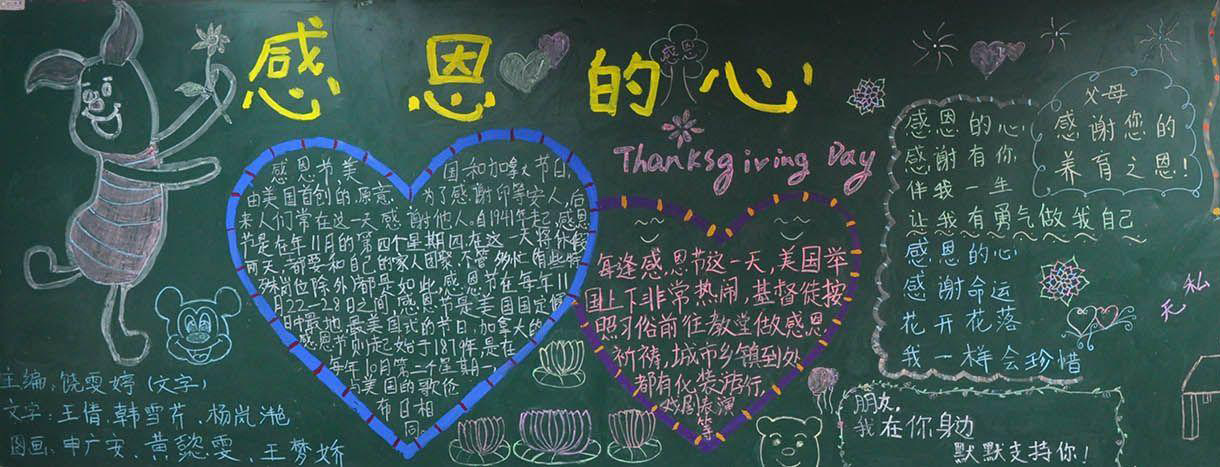 感恩的心
感恩
Thanksgiving Day
感恩节美国和加拿大节日,
由美国首创的原意,为了感谢印第安人,后
来人们常在这一天感谢他人。自1941年起,感恩
节是在年11月的第四个星期四在这一天将休假
两天,都要和自己的家人团聚,不管多忙
岗位除外)都是如此,感恩节在每年11
月22-28日之间,感恩节是美国国定假
日中最地,最美国式的节日,加拿大的
感恩节则起始于1879年,是在
每年10月第二个星期一,
与美国的哥伦
布日相
同。
每逢感恩节这一天,美国举
国上下非常热闹,基督徒按
照习俗前往教堂做感恩
祈祷,城市乡镇到处
都有化装游行
戏剧表演
等
感恩的心
感谢有你
伴我一生
让我有勇气做我自己
感恩的心
感谢命运
花开花落
我一样会珍惜
父母
感谢您的
养育之恩!
无私
朋友,
我在你身边
默默支持你!
主编:饶雯婷(文字)
文字:王倩.韩雪芹.杨岚滟
图画:申广安.黄懿雯.王梦娇